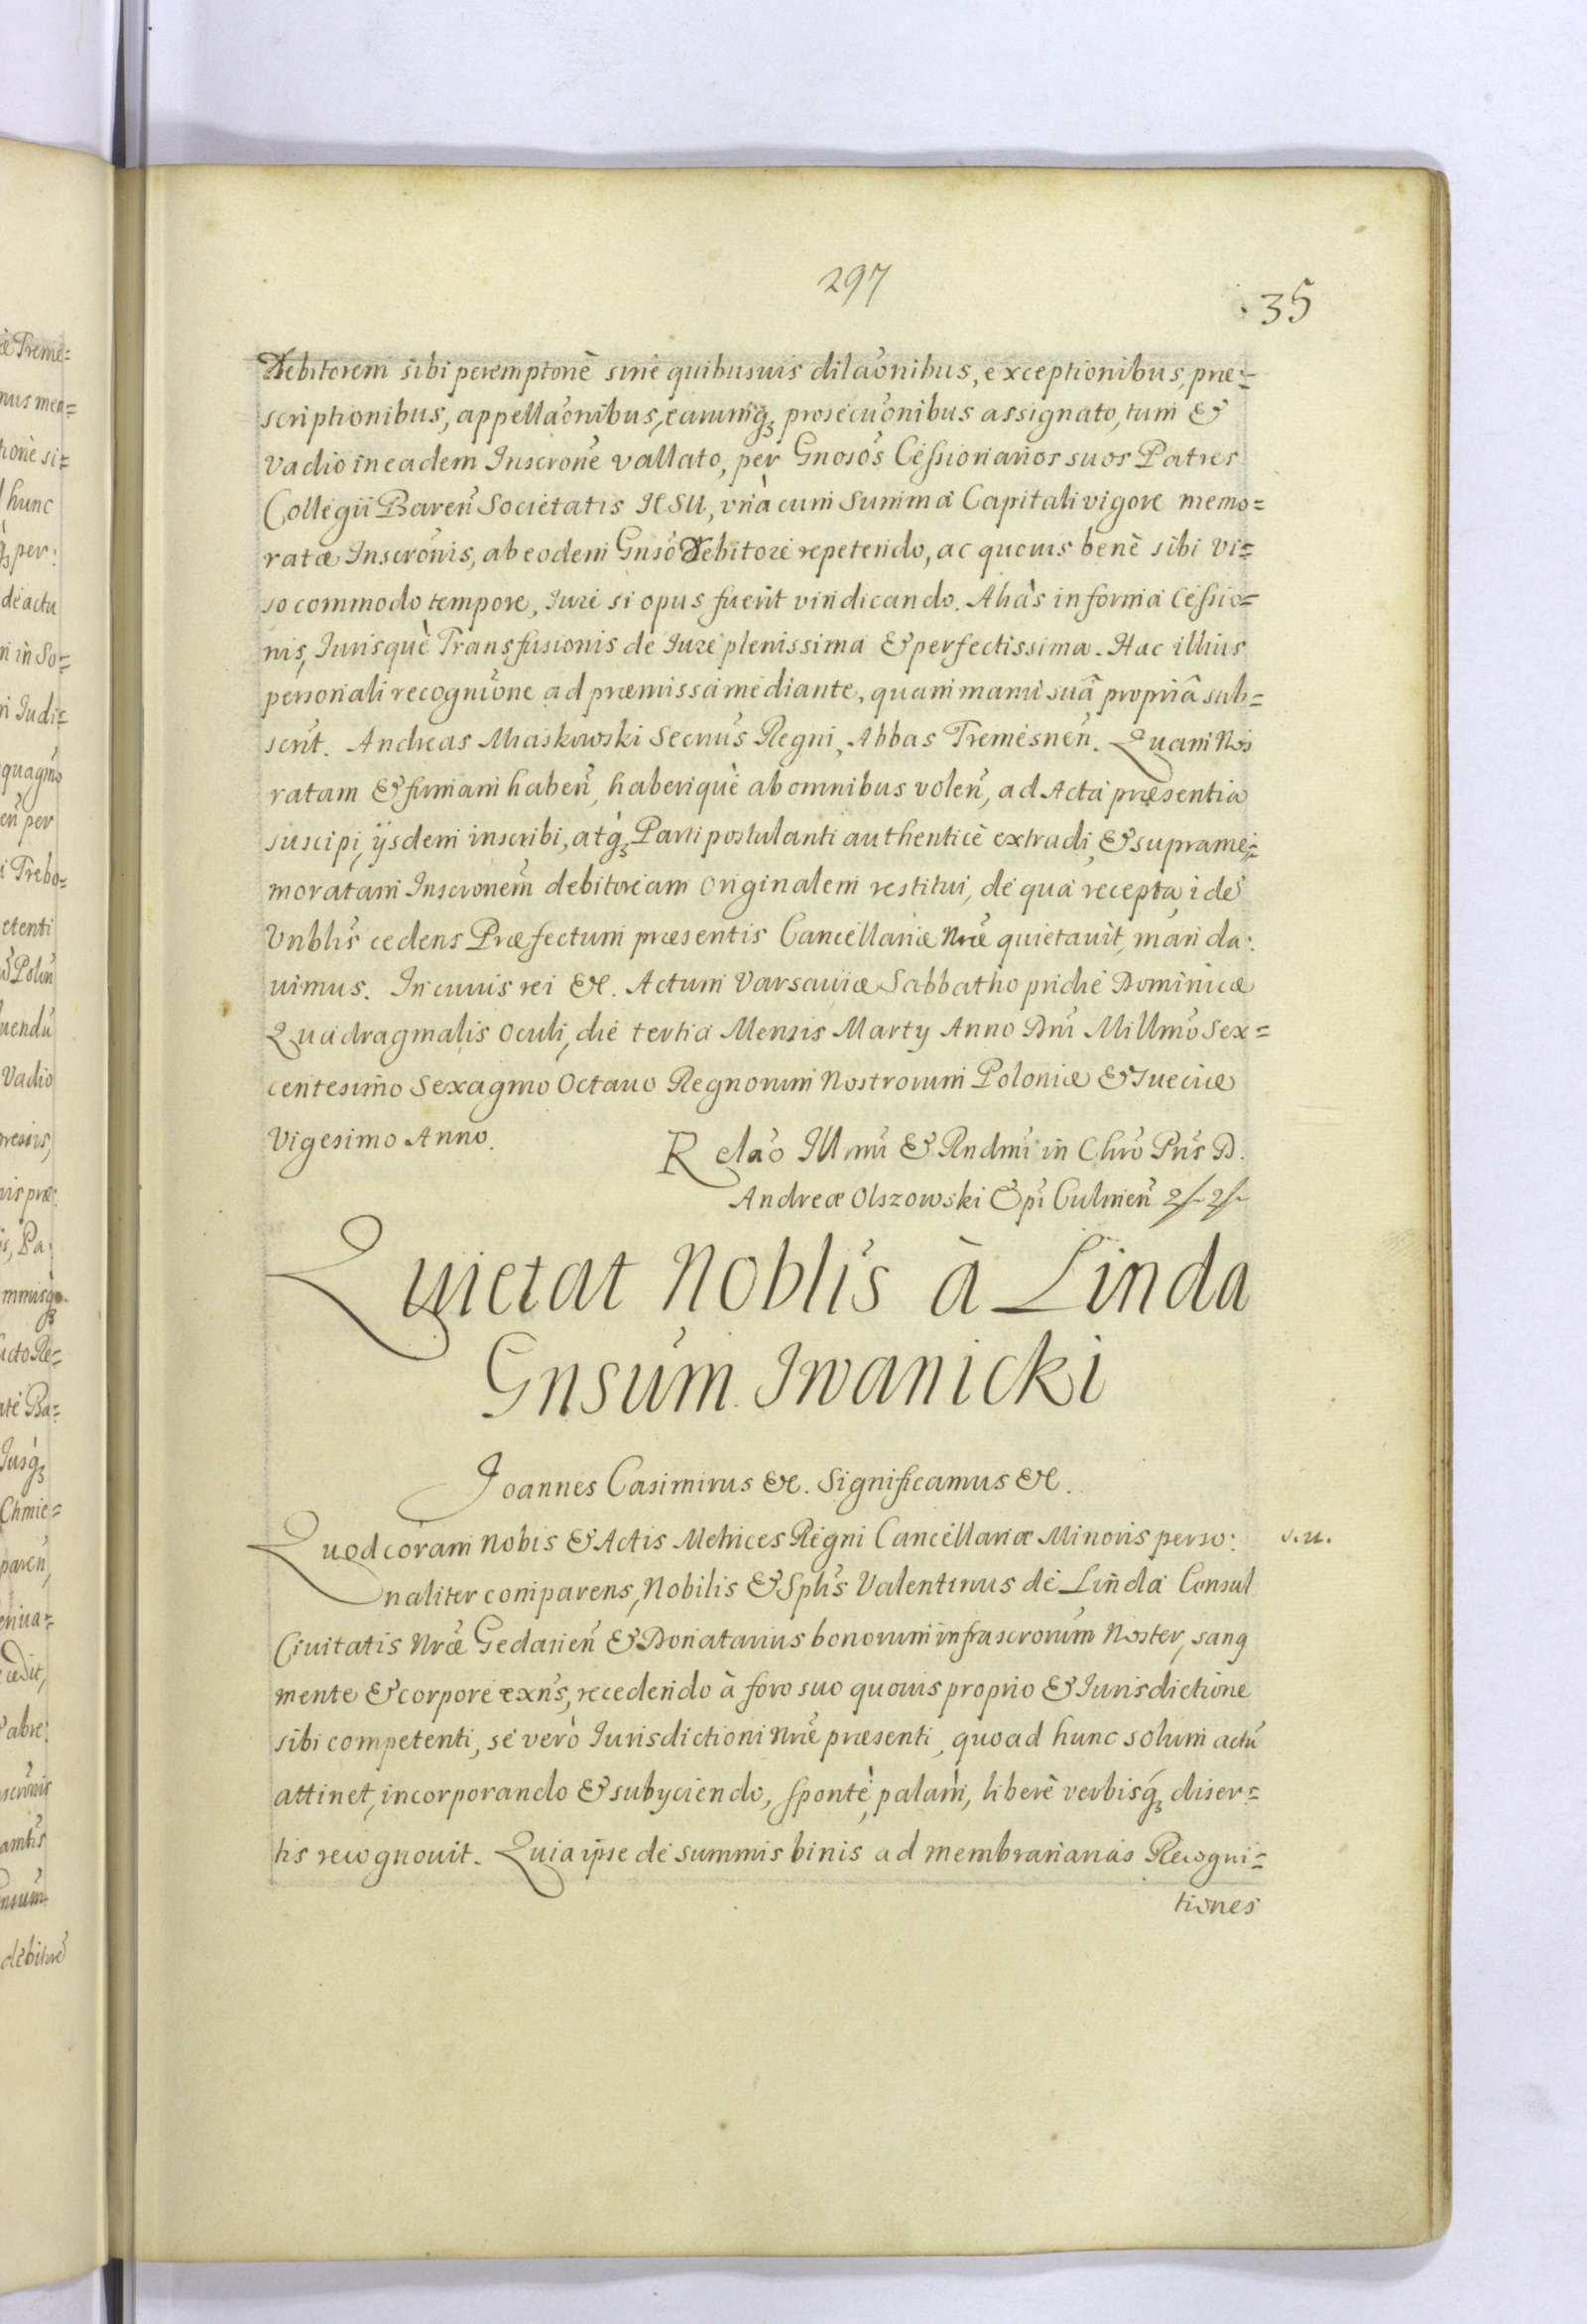 297
35
Debitorem sibi peremptoriè sine quibusuis dilaõnibus, exceptionibus, præ=
scriptionibus, appellaõnibus, earumq́ꝫ prosecuõnibus assignato, tum &
vadio in eadem Inscrõne vallato, per Gnosos Cessionarios suos Patres
Collegii Bareñ Societatis IESU, vnà cum Summa Capitali vigore memo=
ratæ Inscrõnis, ab eodem Gnso Debitore repetendo, ac quouis benè sibi vi=
so commodo tempore, Iure si opus fuerit vindicando. Aliàs in forma Cessio=
nis, Iurisquè Transfusionis de Iure plenissima & perfectissima. Hac illius
personali recogniõne ad præmissa mediante, quam manu suâ propriâ sub=
scrit. Andreas Miaskowski Secrius Regni, Abbas Tremesneñ. Quam Nos
ratam & firmam habeñ, haberiquè ab omnibus voleñ, ad Acta præsentia
suscipi, ijsdem inscribi, atq́ꝫ Parti postulanti authenticè extradi, & suprame=
moratam Inscronem debitoriam originalem restitui, de qua recepta ide
Vnblis cedens Præfectum præsentis Cancellariæ Nræ quietauit, manda:
uimus. In cuius rei &c. Actum Varsauiæ Sabbatho pridie Dominicæ
Quadragmalis Oculi, die tertia Mensis Marty Anno Dni Millmo Sex=
centesimo Sexagmo Octauo Regnorum Nostrorum Poloniæ & Sueciæ
Vigesimo Anno.
Relaõ Illmi & Rndmi in Chro Pris D.
Andreæ Olszowski Epi Culmeñ
Quietat Noblis à Linda
Gnsum Iwanicki
Joannes Casimirus &c. Significamus &c.
Quod coram Nobis & Actis Metrices Regni Cancellariæ Minoris perso:
naliter comparens, Nobilis & Splis Valentinus de Linda Consul
Ciuitatis Nræ Gedaneñ & Donatarius bonorum infrascrorum Noster, sanq
mente & corpore exns, recedendo à foro suo quouis proprio & Iurisdictione
sibi competenti, se verò Iurisdictioni Nræ præsenti, quoad hunc solum actũ
attinet, incorporando & subyciendo, sponte, palam, liberè verbisq́ꝫ diser=
tis recognouit. Quia ipse de summis binis ad membranarias Recogni=
tiones
s.u.